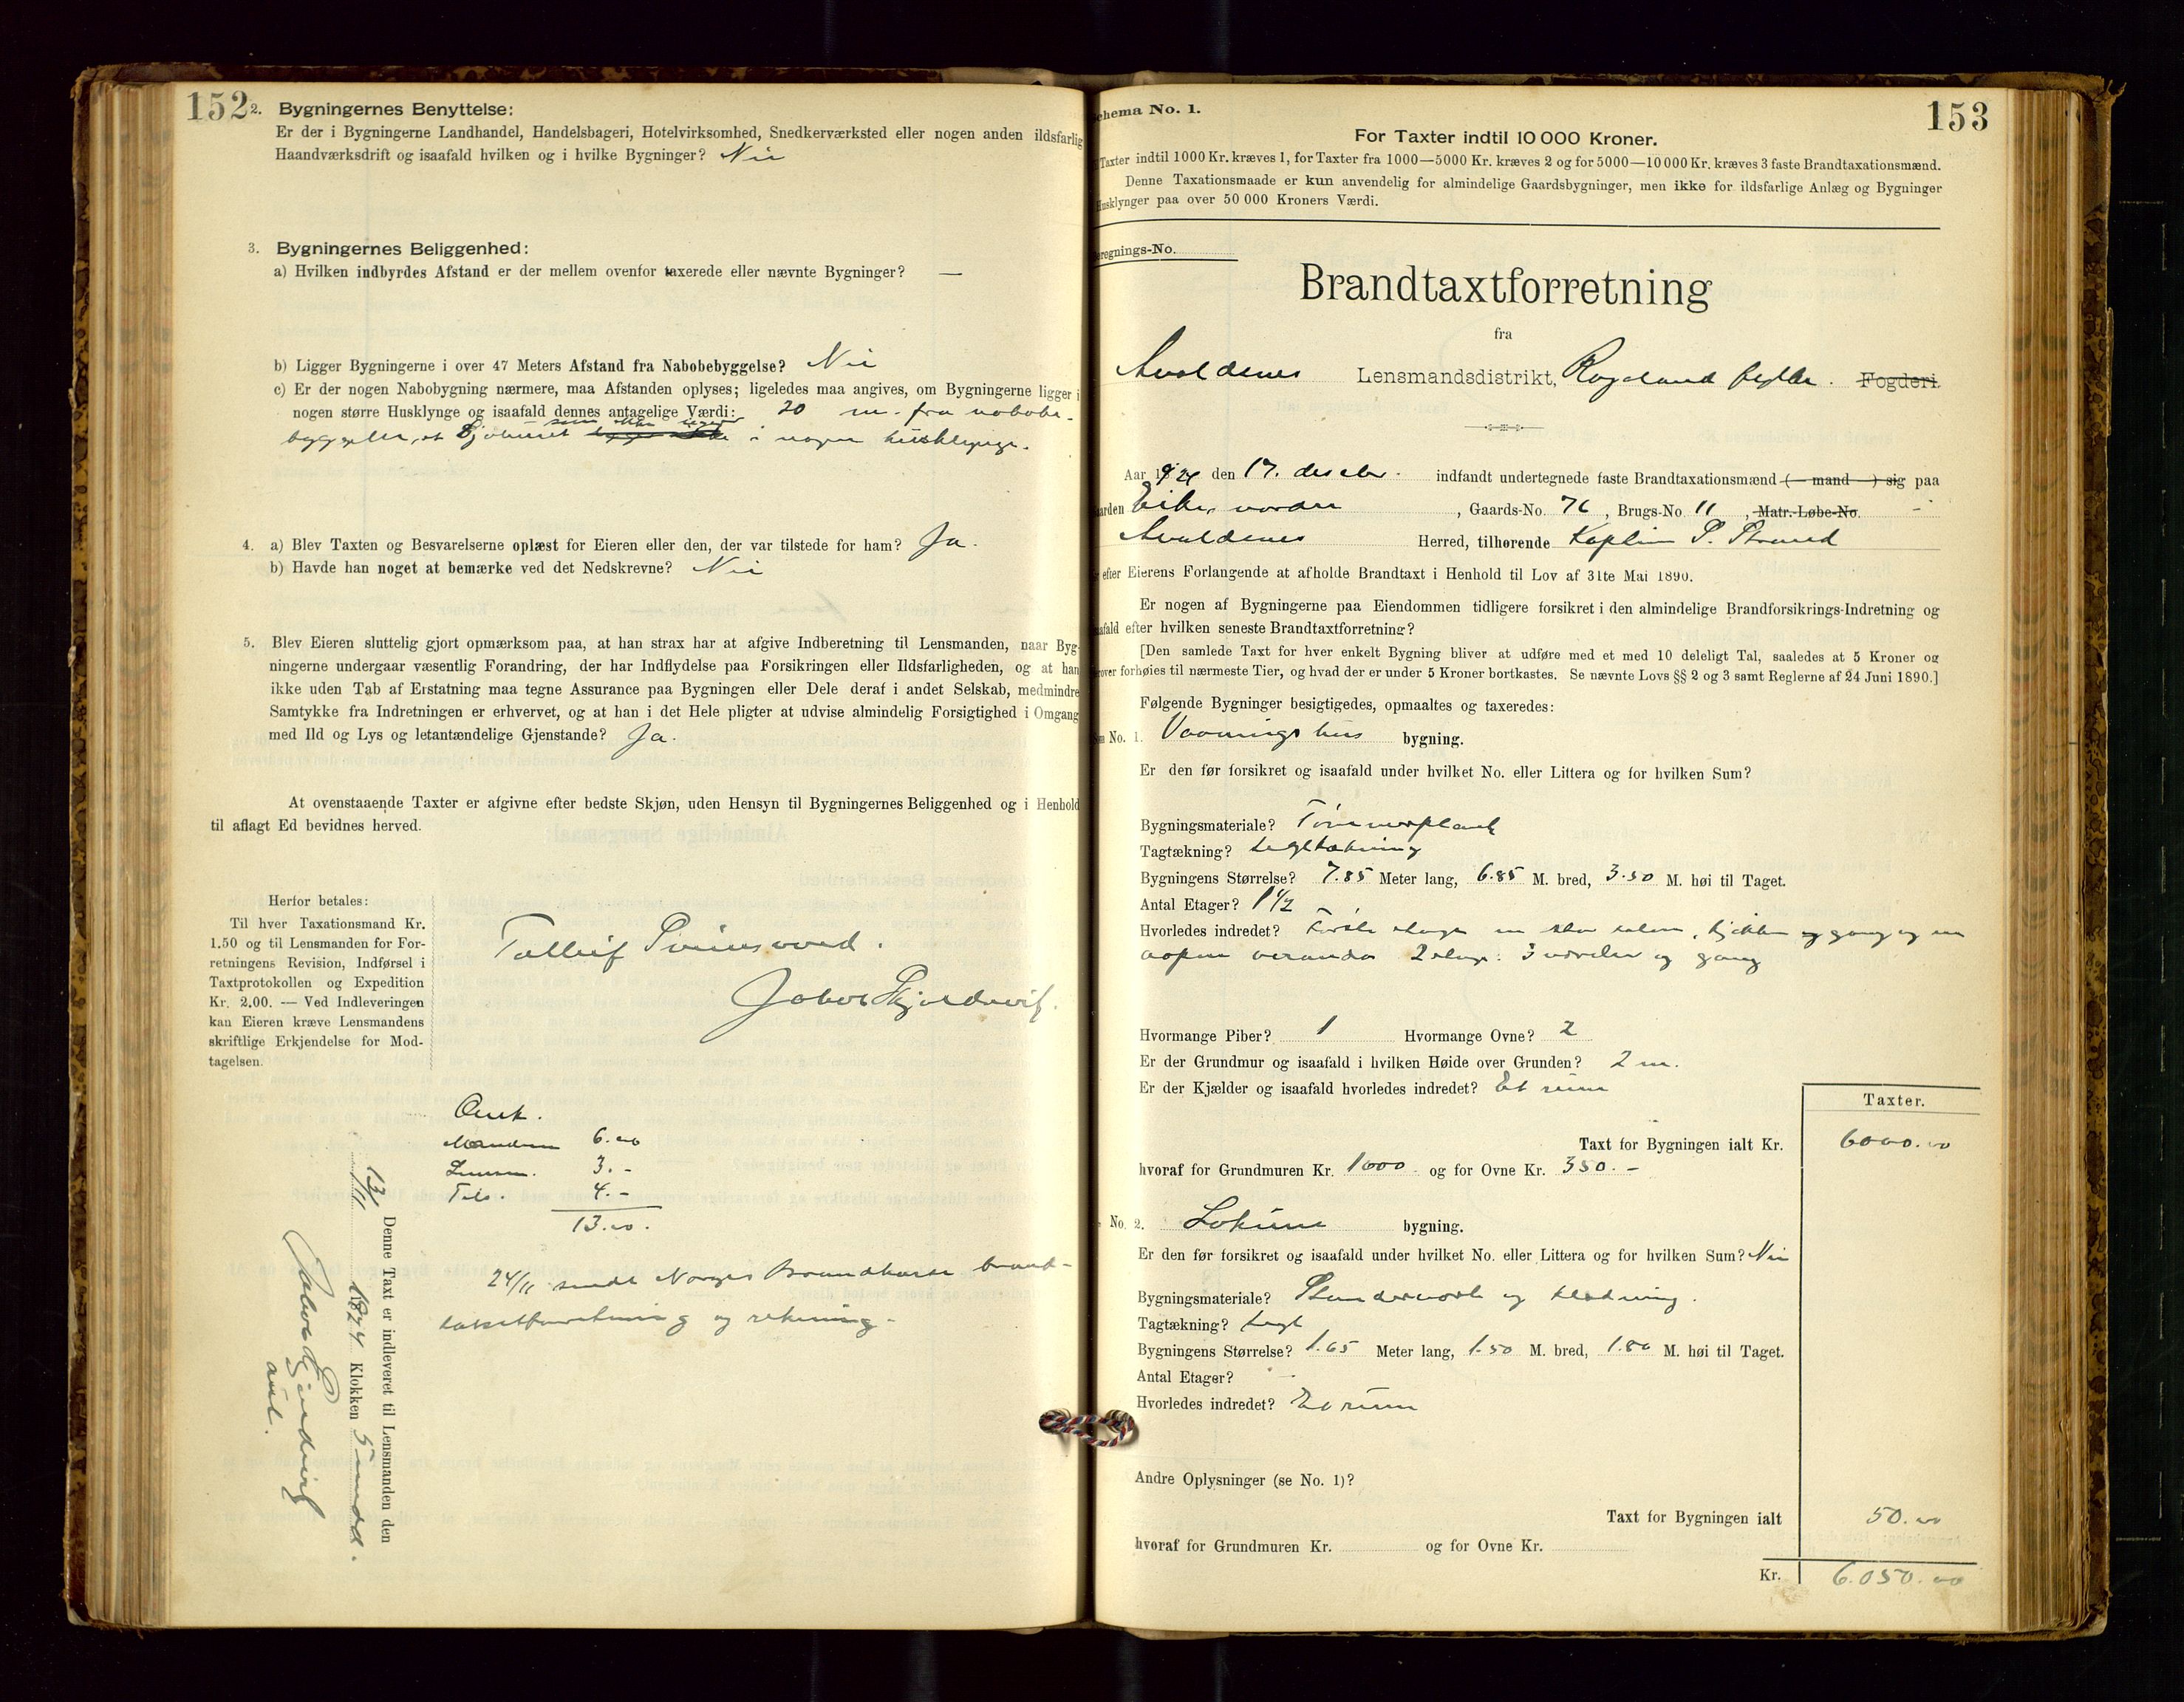 152
2. Bygningernes Benyttelse:
Er der i Bygningerne Landhandel, Handelsbageri, Hotelvirksomhed, Snedkerværksted eller nogen anden ildsfarlig
Haandværksdrift og isaafald hvilken og i hvilke Bygninger? Nei
3. Bygningernes Beliggenhed:
a) Hvilken indbyrdes Afstand er der mellem ovenfor taxerede eller nævnte Bygninger? —
b) Ligger Bygningerne i over 47 Meters Afstand fra Nabobebyggelse? Nei
c) Er der nogen Nabobygning nærmere, maa Afstanden oplyses; ligeledes maa angives, om Bygningerne ligger i
nogen større Husklynge og isaafald dennes antagelige Værdi: 20 m. fra nabobe-
som ikke ligger
byggelse, et i nogen husklynge.
4. a) Blev Taxten og Besvarelserne oplæst for Eieren eller den, der var tilstede for ham? Ja.
b) Havde han noget at bemærke ved det Nedskrevne? Nei
5. Blev Eieren sluttelig gjort opmærksom paa, at han strax har at afgive Indberetning til Lensmanden, naar Byg-
ningerne undergaar væsentlig Forandring, der har Indflydelse paa Forsikringen eller Ildsfarligheden, og at han
ikke uden Tab af Erstatning maa tegne Assurance paa Bygningen eller Dele deraf i andet Selskab, medmindre
Samtykke fra Indretningen er erhvervet, og at han i det Hele pligter at udvise almindelig Forsigtighed i Omgang
med Ild og Lys og letantændelige Gjenstande? Ja.
At ovenstaaende Taxter er afgivne efter bedste Skjøn, uden Hensyn til Bygningernes Beliggenhed og i Henhold
til aflagt Ed bevidnes herved.
Herfor betales:
Til hver Taxationsmand Kr.
1.50 og til Lensmanden for For-
retningens Revision, Indførsel i
Taxtprotokollen og Expedition
Kr. 2.00. — Ved Indleveringen
kan Eieren kræve Lensmandens
skriftlige Erkjendelse for Mod-
tagelsen.
Tolleif Svinsvoed.
Jakob Skjoldevik.
Omk.
Mændene 6.00
Lensm. 3.-
Tils. 4.-
13.00.
24/11 sendt Norges Brandkasse brand-
takstforretning og rekning.
Denne Taxt er indleveret til Lensmanden den
13/11 1924 Klokken 5 immdd.
Jakob Skjoldevik
aut.
153
Schema No. 1.
For Taxter indtil 10 000 Kroner.
Taxter indtil 1000 Kr. kræves 1, for Taxter fra 1000—5000 Kr. kræves 2 og for 5000—10 000 Kr. kræves 3 faste Brandtaxationsmænd.
Denne Taxationsmaade er kun anvendelig for almindelige Gaardsbygninger, men ikke for ildsfarlige Anlæg og Bygninger
Husklynger paa over 50 000 Kroners Værdi.
Beregnings-No.
Brandtaxtforretning
fra
Avaldsnes Lensmandsdistrikt, Rogaland fylke. Fogderi.
Aar 1924 den 17. indfandt undertegnede faste Brandtaxationsmænd (— mand —) sig paa
Gaarden Eike, nordre , Gaards-No. 76 , Brugs-No. 11 , Matr.-Løbe-No. -
Avaldsnes Herred, tilhørende Kaptein P. Strand
for efter Eierens Forlangende at afholde Brandtaxt i Henhold til Lov af 31te Mai 1890.
Er nogen af Bygningerne paa Eiendommen tidligere forsikret i den almindelige Brandforsikrings-Indretning og
isaafald efter hvilken seneste Brandtaxtforretning?
[Den samlede Taxt for hver enkelt Bygning bliver at udføre med et med 10 deleligt Tal, saaledes at 5 Kroner og
derover forhøies til nærmeste Tier, og hvad der er under 5 Kroner bortkastes. Se nævnte Lovs §§ 2 og 3 samt Reglerne af 24 Juni 1890.]
Følgende Bygninger besigtigedes, opmaaltes og taxeredes:
No. 1. Vaaningshus bygning.
Er den før forsikret og isaafald under hvilket No. eller Littera og for hvilken Sum?
Bygningsmateriale? Tømmerplank
Tagtækning? tegltækning
Bygningens Størrelse? 7.85 Meter lang, 6.85 M. bred, 3.50 M. høi til Taget.
Antal Etager? 1 1/2
Hvorledes indredet? Første etage en stor salon, kjøkken og gang og en
aapen veranda 2 etage: 3 værelser og gang
Hvormange Piber? 1 Hvormange Ovne? 2
Er der Grundmur og isaafald i hvilken Høide over Grunden? 2 m.
Er der Kjælder og isaafald hvorledes indredet? Et rum
Taxter.
Taxt for Bygningen ialt Kr. 6000.00
hvoraf for Grundmuren Kr. 1000 og for Ovne Kr. 350.-
No. 2. Lokum bygning.
Er den før forsikret og isaafald under hvilket No. eller Littera og for hvilken Sum? Nei
Bygningsmateriale? Stenderverk og klædning.
Tagtækning? tegl
Bygningens Størrelse? 1.65 Meter lang, 1.50 M. bred, 1.80 M. høi til Taget.
Antal Etager? -
Hvorledes indredet? Et rum
Andre Oplysninger (se No. 1)?
Taxt for Bygningen ialt 50.00
hvoraf for Grundmuren Kr. og for Ovne Kr.
Kr. 6.050.00